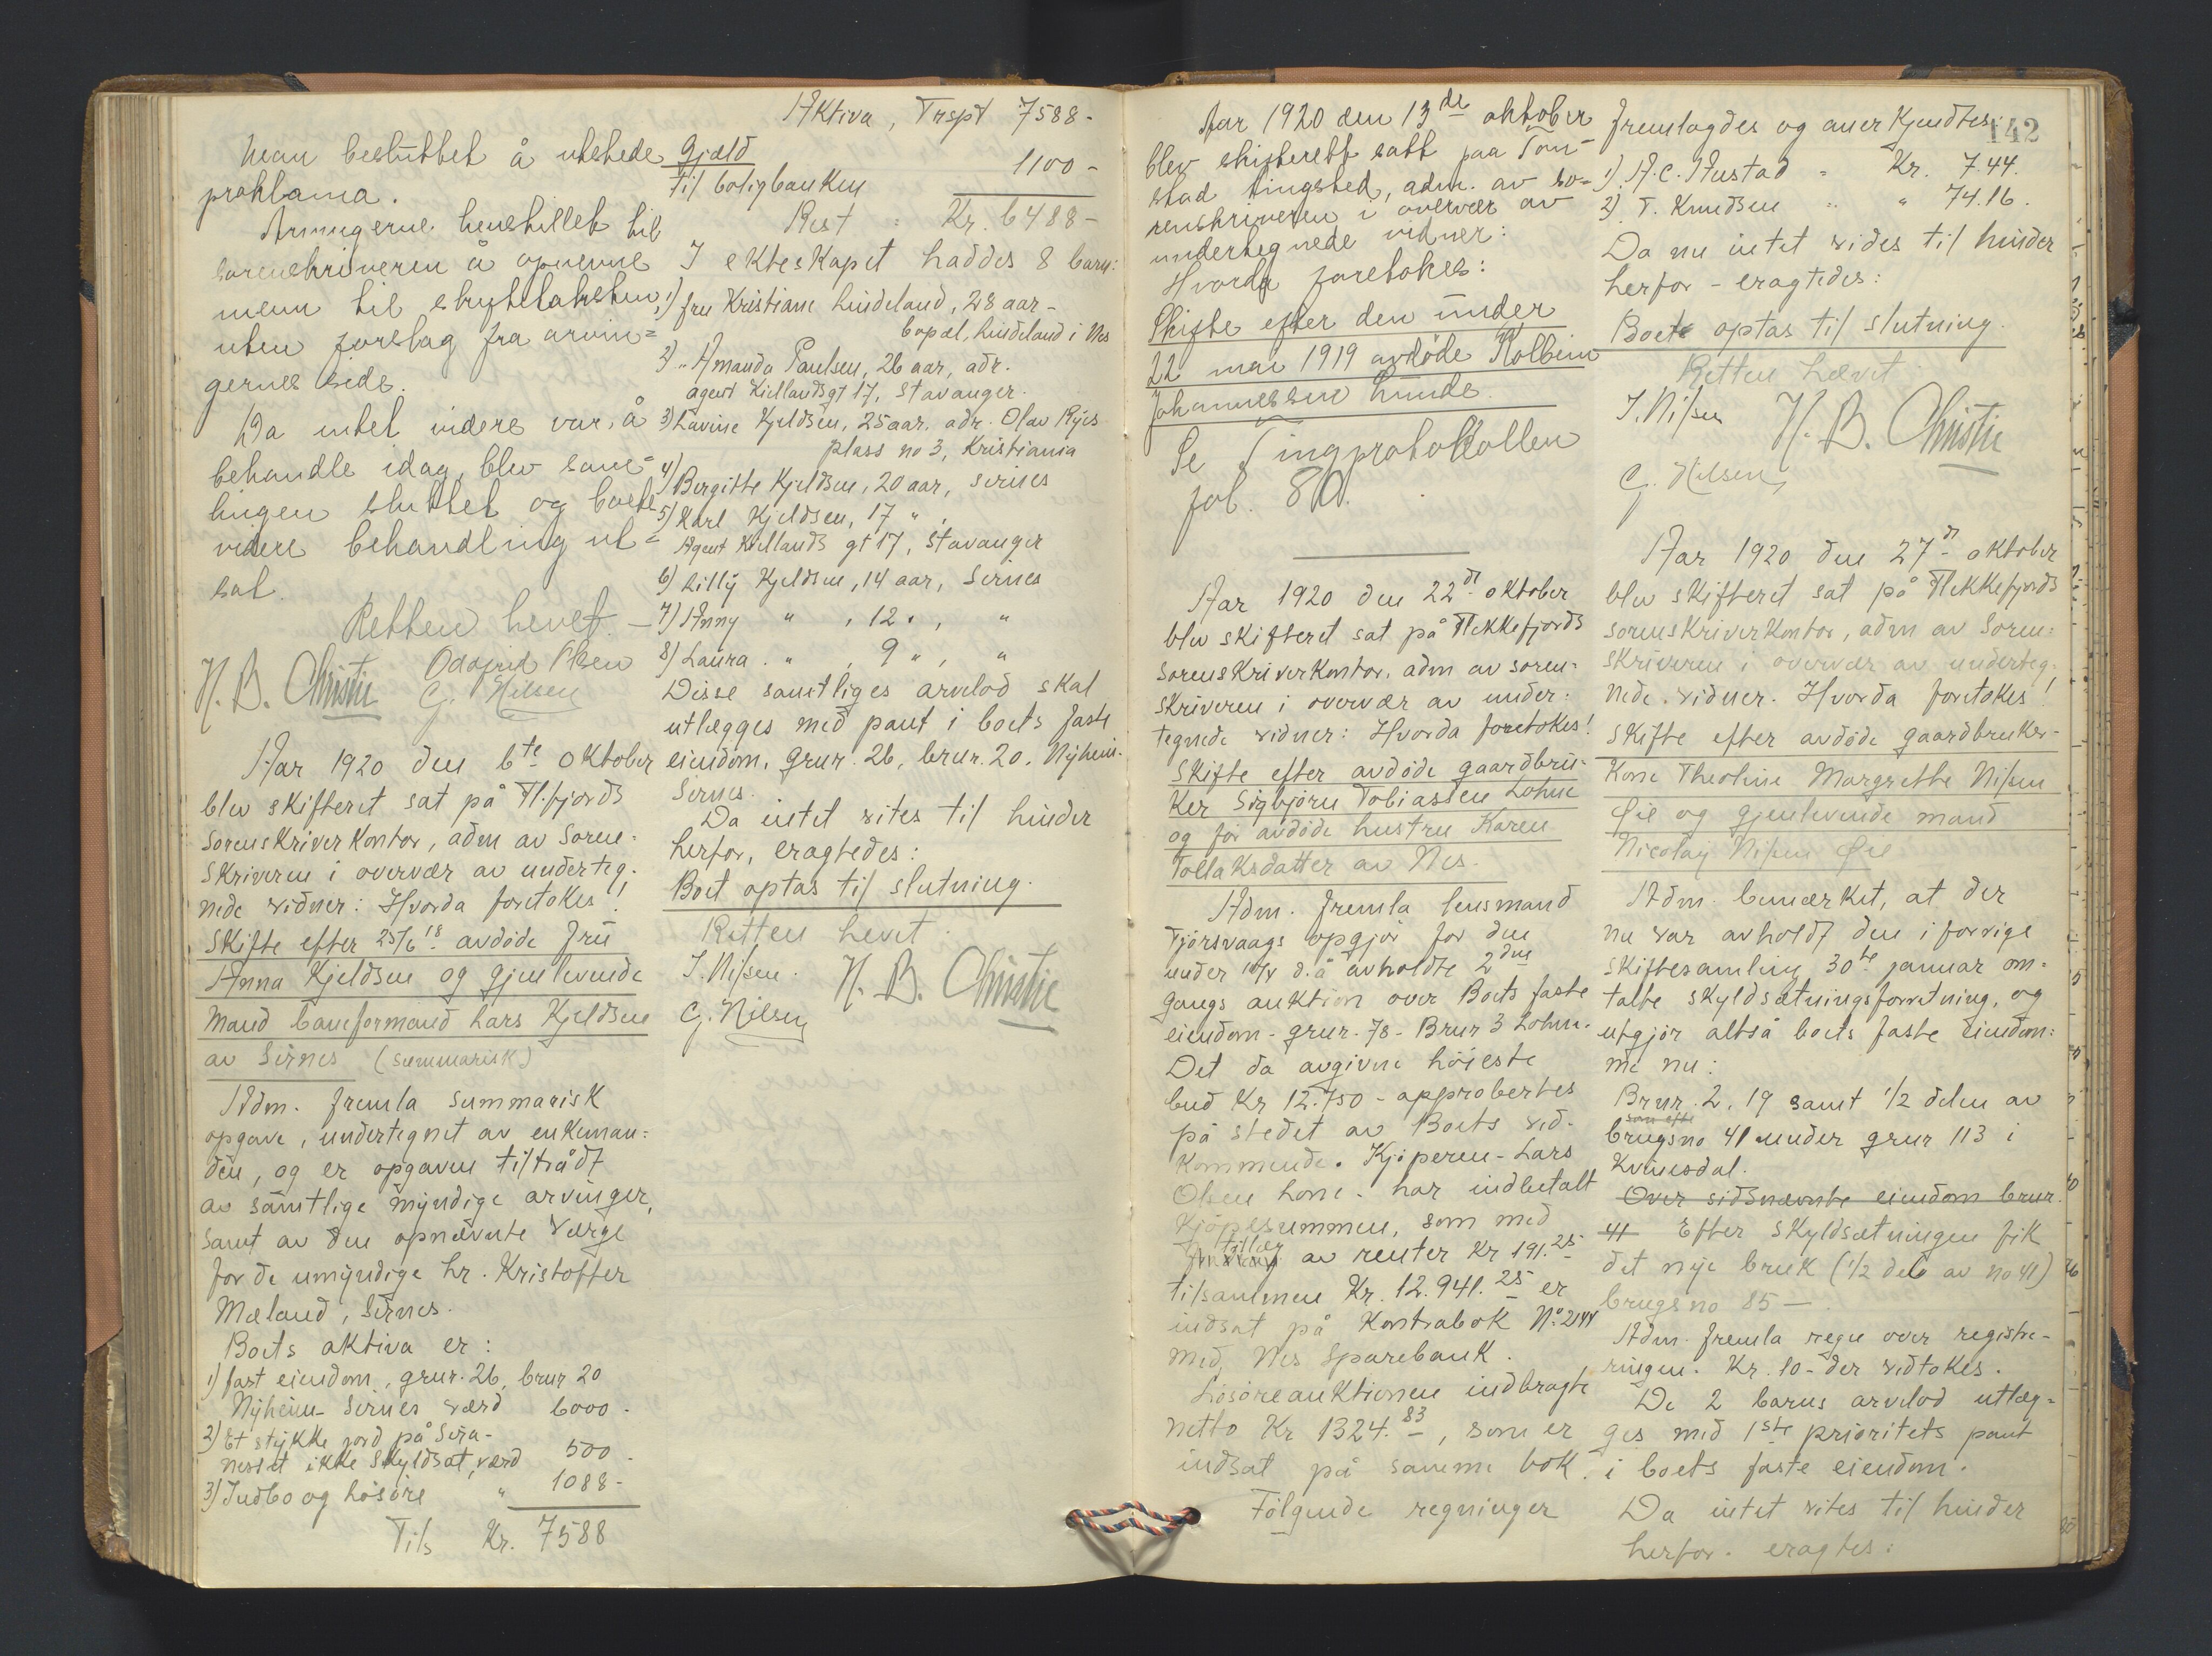 Man besluttet å utstede
proklama.
Arvingerne henstillet til
sorenskriveren å opnevne
menn til skyldtaksten,
uten forslag fra arvin=
gernes side.
Da intet videre var å
behandle idag, blev sam=
lingen sluttet og boets
videre behandling ut=
sat.
Retten hevet. —
H. B. Christie
Olsen
G. Nilsen
Aar 1920 den 6te oktober
blev skifteret sat på Fl.fjords
Sorenskriverkontor, adm av Soren=
skriveren i overvær av underteg.
nede vidner: Hvorda foretokes!
Skifte efter 25/6 18 avdøde fru
Anna Kjeldsen og gjenlevende
mand baneformand Lars Kjeldsen
av Sirnes (summarisk)
Adm. fremla summarisk
opgave, undertegnet av enkeman=
den, og er opgaven tiltrådt
av samtlige myndige arvinger,
samt av den opnævnte værge
for de umyndige hr. Kristoffer
Mæland, Sirnes.
Boets aktiva er:
1) fast eiendom, grnr. 26, brnr 20
Nyheim Sirnes værd 6000.
2) Et stykke jord på Sira-
nesset ikke skyldsat, værd 500.
3) Indbo og løsøre " 1088-
Tils Kr. 7588
Aktiva, Trspt 7588-
Gjæld
til boligbanken 1100-
Rest : Kr. 6488-
I ekteskapet haddes 8 barn:
1) fru Kristiane Lindeland, 28 aar-
bopæl, Lindeland i Nes
2) " Amanda Paulsen, 26 aar, adr.
agent Kiellandsgt 17, Stavanger.
3) Lavine Kjeldsen, 25 aar. adr. Olav Ryes
plass no 3, Kristiania
4) Bergitte Kjeldsen, 20 aar, Sirnes
5) Karl Kjeldsen, 17 " ,
Agent Kiellands gt 17, Stavanger
6) Lilly Kjeldsen, 14 aar, Sirnes
7) Anny " , 12 " , "
8) Laura . " , 9 " , "
Disse samtliges arvelod skal
utlægges med pant i boets faste
eiendom, grnr. 26, brnr. 20. Nyheim-
Sirnes.
Da intet vites til hinder
herfor, eragtedes:
Boet optas til slutning.
Retten hevet.
J. Nilsen. H. B. Christie
G. Nilsen
142
Aar 1920 den 13de oktober
blev skifterett satt paa Tom-
stad tingsted, adm. av so=
renskriveren i overvær av
undertegnede vidner:
Hvorda foretokes:
Skifte efter den under
22 mai 1919 avdøde Kolbein
Johannessen Lunde.
Se Tingprotokollen
fol. 80.
Aar 1920 den 22de oktober
blev skifteret sat på Flekkefjords
Sorenskriverkontor, adm av soren=
skriveren i overvær av under=
tegnede vidner: Hvorda foretokes!
Skifte efter avdøde gaardbru-
ker Sigbjørn Tobiassen Lohne
og før avdøde hustru Karen
Tollaksdatter av Nes.
Adm. fremla lensmand
Fjørsvaags opgjør for den
under 10/4 d.å avholdte 2den
gangs auktion over Boets faste
eiendom - grnr. 78 - Brnr 3 Lohne.
Det da avgivne høieste
bud Kr 12.750 - approbertes
på stedet av Boets ved-
kommende. Kjøperen - Lars
Olsen Lone - har indbetalt
kjøpesummen, som med
tillæg av renter Kr 191.25
tilsammen Kr. 12.941.25 er
indsat på Kontrabok No 2144
med Nes Sparebank.
Løsøreauktionen indbragte
netto Kr 1324.83, som er
indsat på samme bok.
Følgende regninger
fremlagdes og anerkjendtes:
1) A. C. Austad - Kr. 7.44.
2) T. Knudsen " " 74.16.
Da nu intet vides til hinder
herfor - eragtedes:
Boet optas til slutning.
Retten hævet
J. Nilsen H. B. Christie
G. Nilsen
Aar 1920 den 27de oktober
blev skifteret sat på Flekkefjords
sorenskriverkontor, adm av Soren=
skriveren i overvær av underteg-
nede vidner. Hvorda foretokes!
Skifte efter avdøde gaardbruker-
kone Theoline Margrethe Nilsen
Øie og gjenlevende mand
Nicolay Nilsen Øie
Adm. bemærket, at der
nu var avholdt den i forrige
skiftesamling 30te januar om-
talte skyldsætningsforretning, og
utgjør altså boets faste eiendom=
me nu:
Brnr. 2, 19 samt 1/2 delen av
brugsno 41 under grnr 113 i
Kvinesdal.
Over sidstnævnte eiendom brnr.
41 Efter skyldsætningen fik
det nye bruk (1/2 del av no 41)
brugsno 85 —.
Adm. fremla regn over registre-
ringen. Kr. 10- der vedtokes.
De 2 barns arvelod utlæg=
ges med 1ste prioritets pant
i boets faste eiendom.
Da intet vites til hinder
herfor. eragtes: